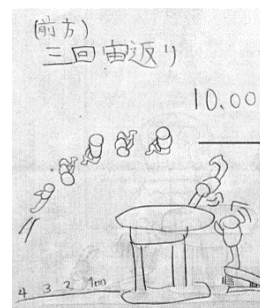 (前方)
三回宙返り
10.00
4 3 2 1m